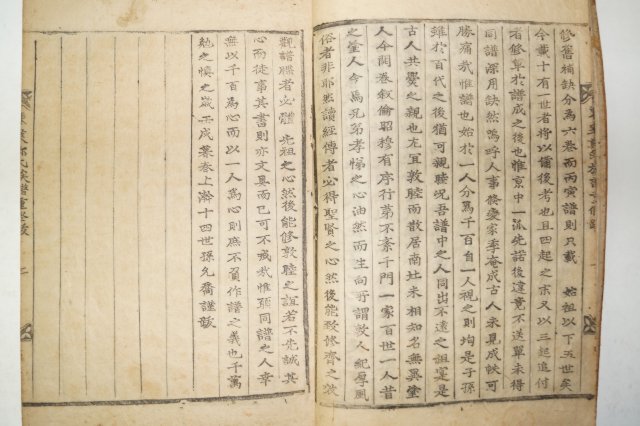 修舊補缺分爲六卷而丙寅譜則只載 始祖以下五世矣
今載十有一世者將以備後考也且四起之末又以三起追付
者修草於譜成之後也惟京中一派先諾後違竟不送單未得
同譜深用訣然嗚呼人事嬗變家季奄成古人未見成帙可
勝痛哉惟譜也始於一人分爲千百自一人視之則均是子孫
雖於百代之後猶可親睦況吾譜中之人同出不遠之祖寔是
古人共爨之親也尤宜敦睦而散居南北未相知名無異塗
人今閱卷叙倫昭穆有序行第不紊千門一家百世一人昔
之塗人今爲兄弟孝悌之心油然而生向所謂敦人紀厚風
俗者非耶然讀經傳者必得聖賢之心然後能致修齊之效
觀譜牒者必體 先祖之心然後能修敦睦之誼若不先誠其
心而徒事其書則亦文具而已可不戒哉惟願同譜之人幸
無以千百爲心而以一人爲心則庶不負作譜之義也千萬
勉之慎之歲 戌 春上澣十四世孫 喬謹跋